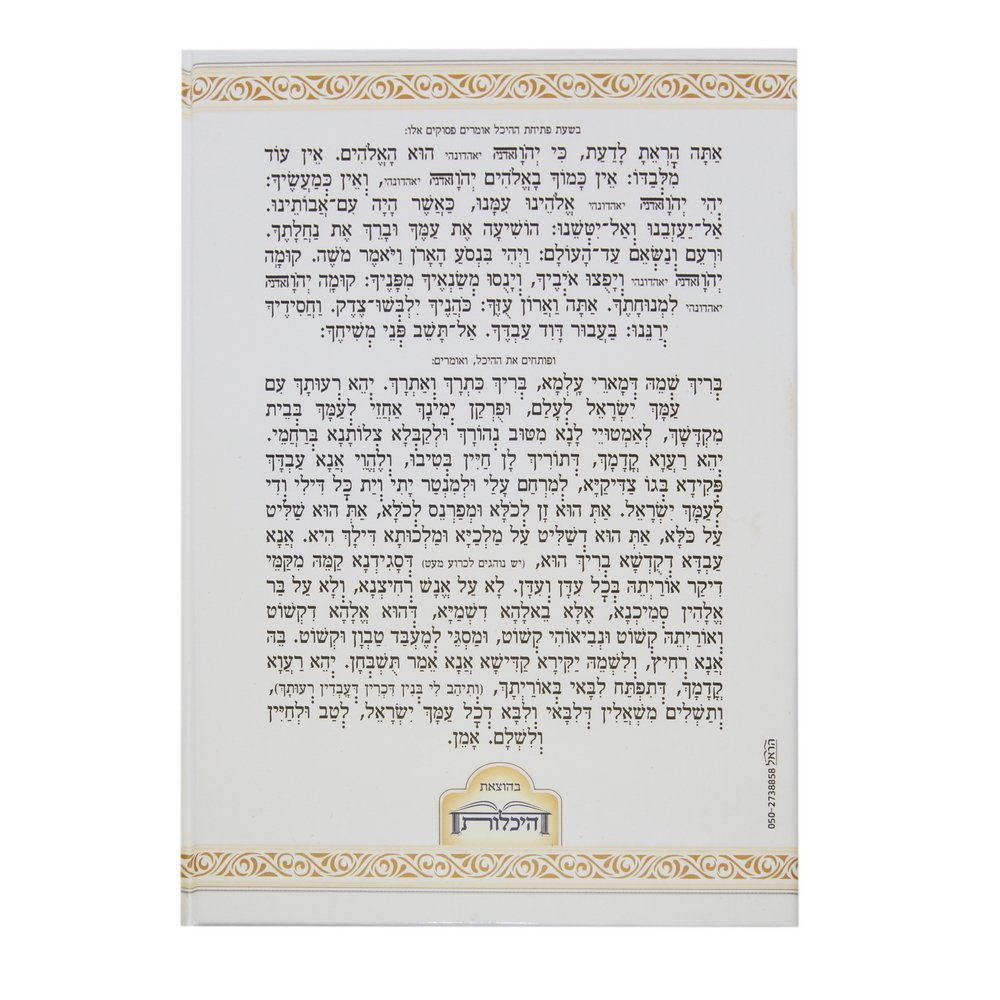 בשעת פתיחת ההיכל אומרים פסוקים אלו:
אַתָּה הָרְאֵתָ לָדַעַת, כִּי יְהֹוָה אדני יאהדונהי הוּא הָאֱלֹהִים. אֵין עוֹד
מִלְּבַדּוֹ: אֵין כָּמוֹךָ בָאֱלֹהִים יְהֹוָה אדני יאהדונהי, וְאֵין כְּמַעֲשֶׂיךָ:
יְהִי יְהֹוָה אדני יאהדונהי אֱלֹהֵינוּ עִמָּנוּ, כַּאֲשֶׁר הָיָה עִם־אֲבוֹתֵינוּ.
אַל־יַעַזְבֵנוּ וְאַל־יִטְּשֵׁנוּ: הוֹשִׁיעָה אֶת עַמֶּךָ וּבָרֵךְ אֶת נַחֲלָתֶךָ.
וּרְעֵם וְנַשְּׂאֵם עַד־הָעוֹלָם: וַיְהִי בִּנְסֹעַ הָאָרֹן וַיֹּאמֶר מֹשֶׁה. קוּמָה
יְהֹוָה אדני יאהדונהי וְיָפֻצוּ אֹיְבֶיךָ, וְיָנֻסוּ מְשַׂנְאֶיךָ מִפָּנֶיךָ: קוּמָה יְהֹוָה אדני
יאהדונהי לִמְנוּחָתֶךָ. אַתָּה וַאֲרוֹן עֻזֶּךָ: כֹּהֲנֶיךָ יִלְבְּשׁוּ־צֶדֶק. וַחֲסִידֶיךָ
יְרַנֵּנוּ: בַּעֲבוּר דָּוִד עַבְדֶּךָ. אַל־תָּשֵׁב פְּנֵי מְשִׁיחֶךָ:
ופותחים את ההיכל, ואומרים:
בְּרִיךְ שְׁמֵהּ דְּמָארֵי עָלְמָא, בְּרִיךְ כִּתְרָךְ וְאַתְרָךְ. יְהֵא רְעוּתָךְ עִם
עַמָּךְ יִשְׂרָאֵל לְעָלַם, וּפֻרְקַן יְמִינָךְ אַחֲזֵי לְעַמָּךְ בְּבֵית
מִקְדָּשָׁךְ, לְאַמְטוּיֵי לָנָא מִטּוּב נְהוֹרָךְ וּלְקַבְּלָא צְלוֹתָנָא בְּרַחֲמֵי.
יְהֵא רַעֲוָא קֳדָמָךְ, דְּתוֹרִיךְ לָן חַיִּין בְּטִיבוּ, וְלֶהֱוֵי אֲנָא עַבְדָּךְ
פְּקִידָא בְּגוֹ צַדִּיקַיָּא, לְמִרְחַם עָלַי וּלְמִנְטַר יָתִי וְיַת כָּל דִּילִי וְדִי
לְעַמָּךְ יִשְׂרָאֵל. אַנְתְּ הוּא זָן לְכֹלָּא וּמְפַרְנֵס לְכֹלָּא, אַנְתְּ הוּא שַׁלִּיט
עַל כֹּלָּא, אַנְתְּ הוּא דְשַׁלִּיט עַל מַלְכַיָּא וּמַלְכוּתָא דִּילָךְ הִיא. אֲנָא
עַבְדָּא דְקֻדְשָׁא בְּרִיךְ הוּא, (יש נוהגים לכרוע מעט) דְּסָגִידְנָא קַמֵּהּ מִקַּמֵּי
דִּיקַר אוֹרַיְתֵהּ בְּכָל עִדָּן וְעִדָּן. לָא עַל אֱנָשׁ רָחִיצְנָא, וְלָא עַל בַּר
אֱלָהִין סְמִיכְנָא, אֶלָּא בֶּאֱלָהָא דִּשְׁמַיָּא, דְּהוּא אֱלָהָא דִקְשׁוֹט
וְאוֹרַיְתֵהּ קְשׁוֹט וּנְבִיאוֹהִי קְשׁוֹט, וּמַסְגֵּי לְמֶעְבַּד טַבְוָן וּקְשׁוֹט. בֵּהּ
אֲנָא רָחִיץ, וְלִשְׁמֵהּ יַקִּירָא קַדִּישָׁא אֲנָא אֵמַר תֻּשְׁבְּחָן. יְהֵא רַעֲוָא
קֳדָמָךְ, דְּתִפְתַּח לִבָּאי בְּאוֹרַיְתָךְ, (וְתֵיהַב לִי בְּנִין דִּכְרִין דְּעָבְדִין רְעוּתָךְ),
וְתַשְׁלִים מִשְׁאֲלִין דְּלִבָּאי וְלִבָּא דְכָל עַמָּךְ יִשְׂרָאֵל, לְטַב וּלְחַיִּין
וְלִשְׁלָם. אָמֵן.
בהוצאת
היכלות
הראל 050-2738858